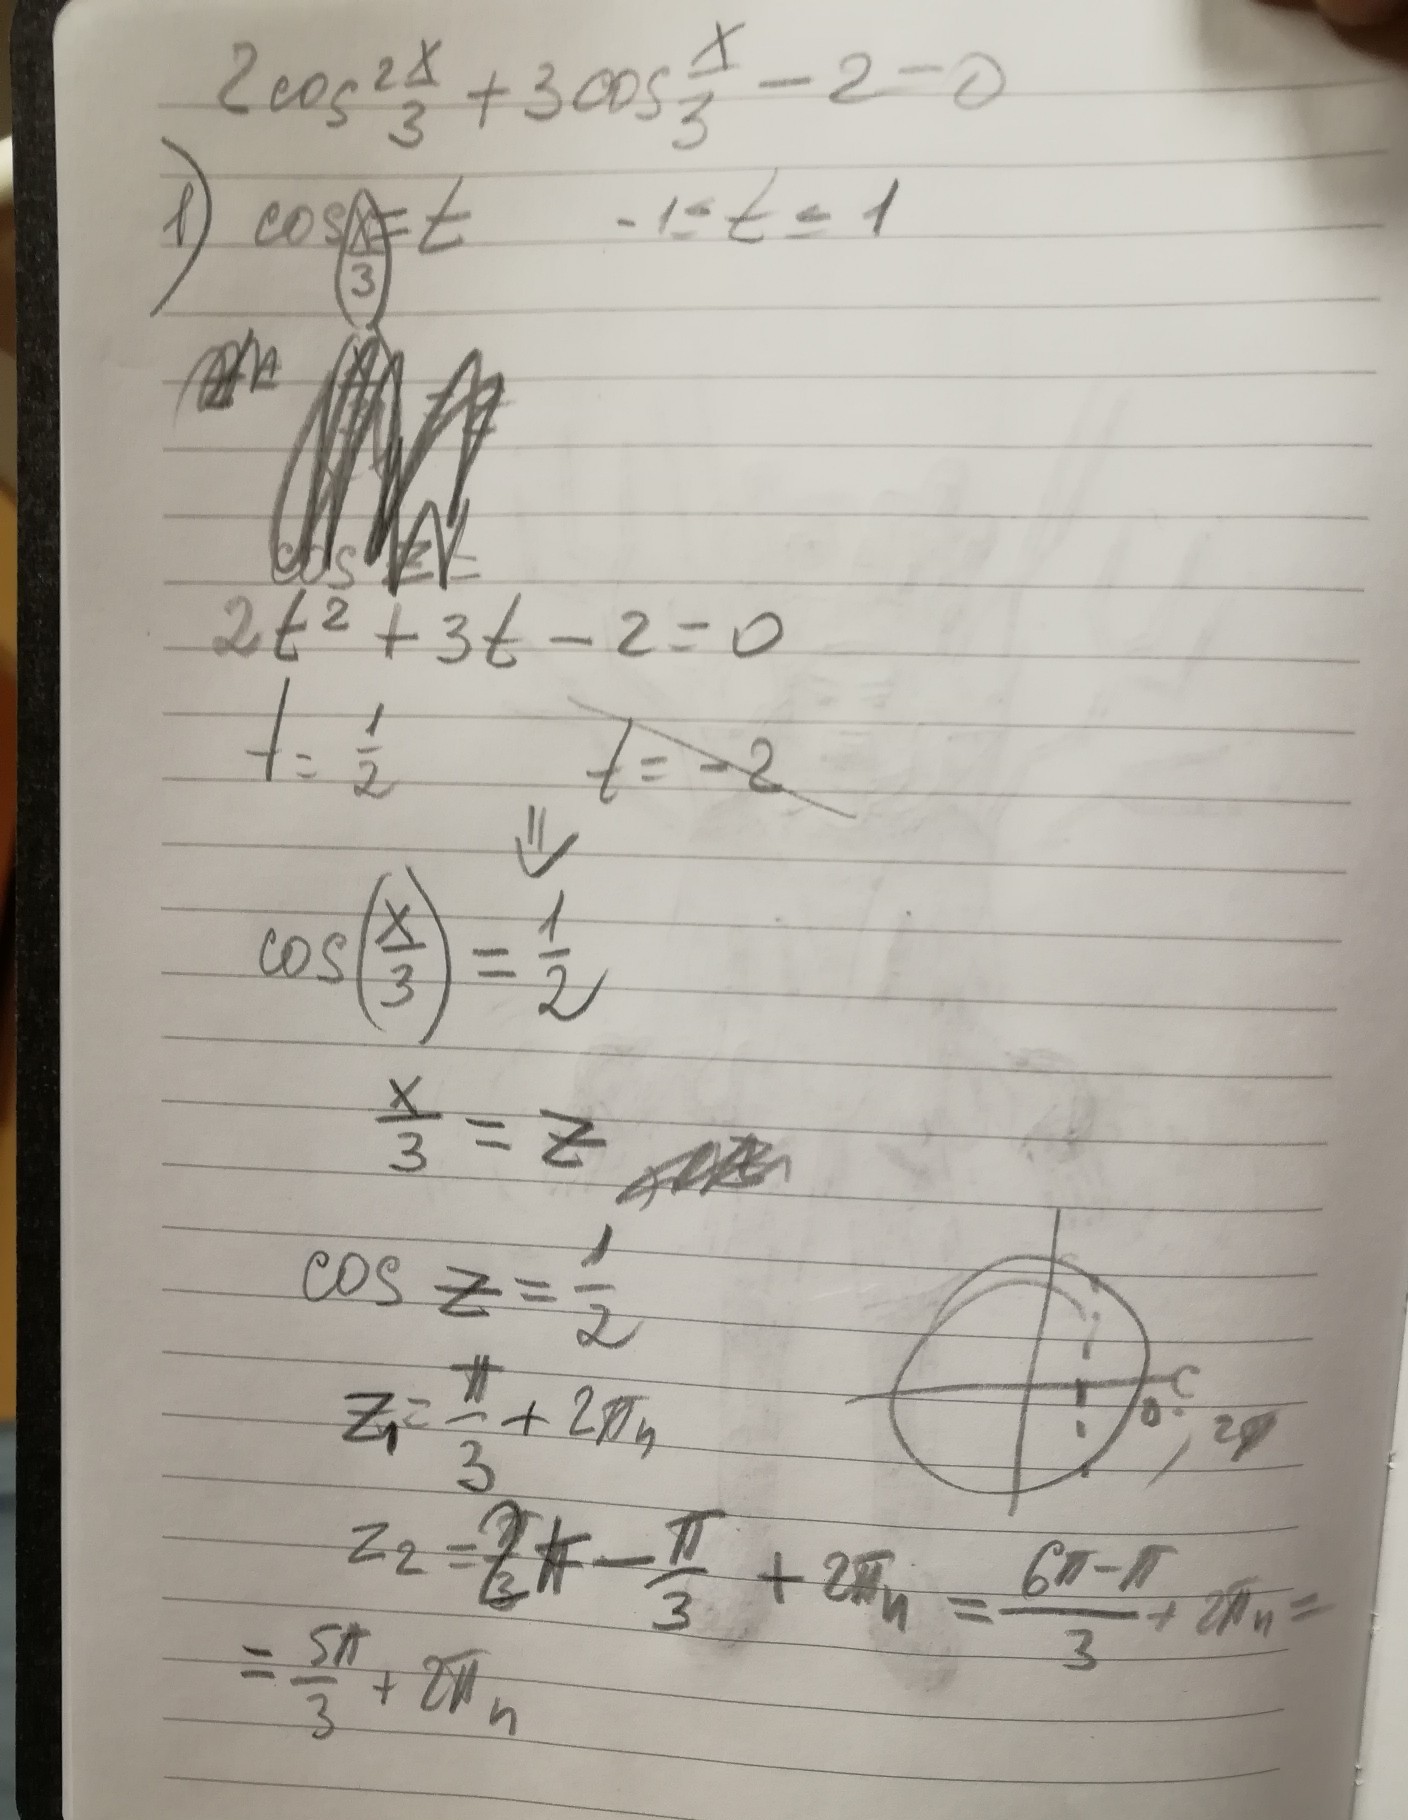 2cos²x/3 + 3cos x/3 - 2 = 0
1) cos x/3 = t   -1 ≤ t ≤ 1
cos z =
2t² + 3t - 2 = 0
t = 1/2   t = -2
⇓
cos(x/3) = 1/2
x/3 = z
cos z = 1/2
z₁ = π/3 + 2πn
z₂ = 2π - π/3 + 2πn = (6π-π)/3 + 2πn =
= 5π/3 + 2πn